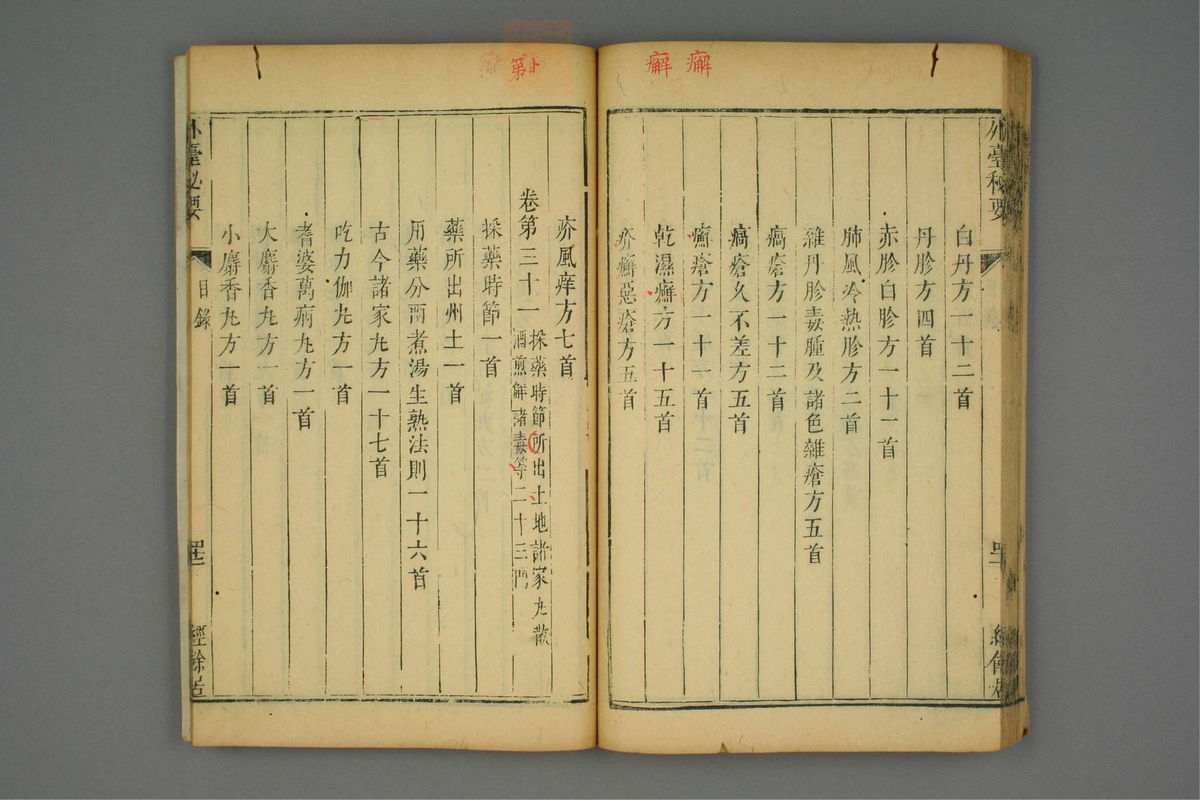 癬 癬
外臺秘要
白丹方一十二首
丹胗方四首
赤胗白胗方一十一首
肺風冷熱胗方二首
雜丹胗毒腫及諸色雜瘡方五首
瘑瘡方一十二首
瘑瘡久不差方五首
癬瘡方一十一首
乾濕癬方一十五首
疥癬惡瘡方五首
第
疥風痒方七首
卷第三十一
採藥時節所出土地諸家丸散
酒煎解諸毒等二十三門
採藥時節一首
藥所出州土一首
用藥分兩煮湯生熟法則一十六首
古今諸家丸方一十七首
吃力伽丸方一首
耆婆萬病丸方一首
大麝香丸方一首
小麝香丸方一首
外臺秘要
目錄
經餘居